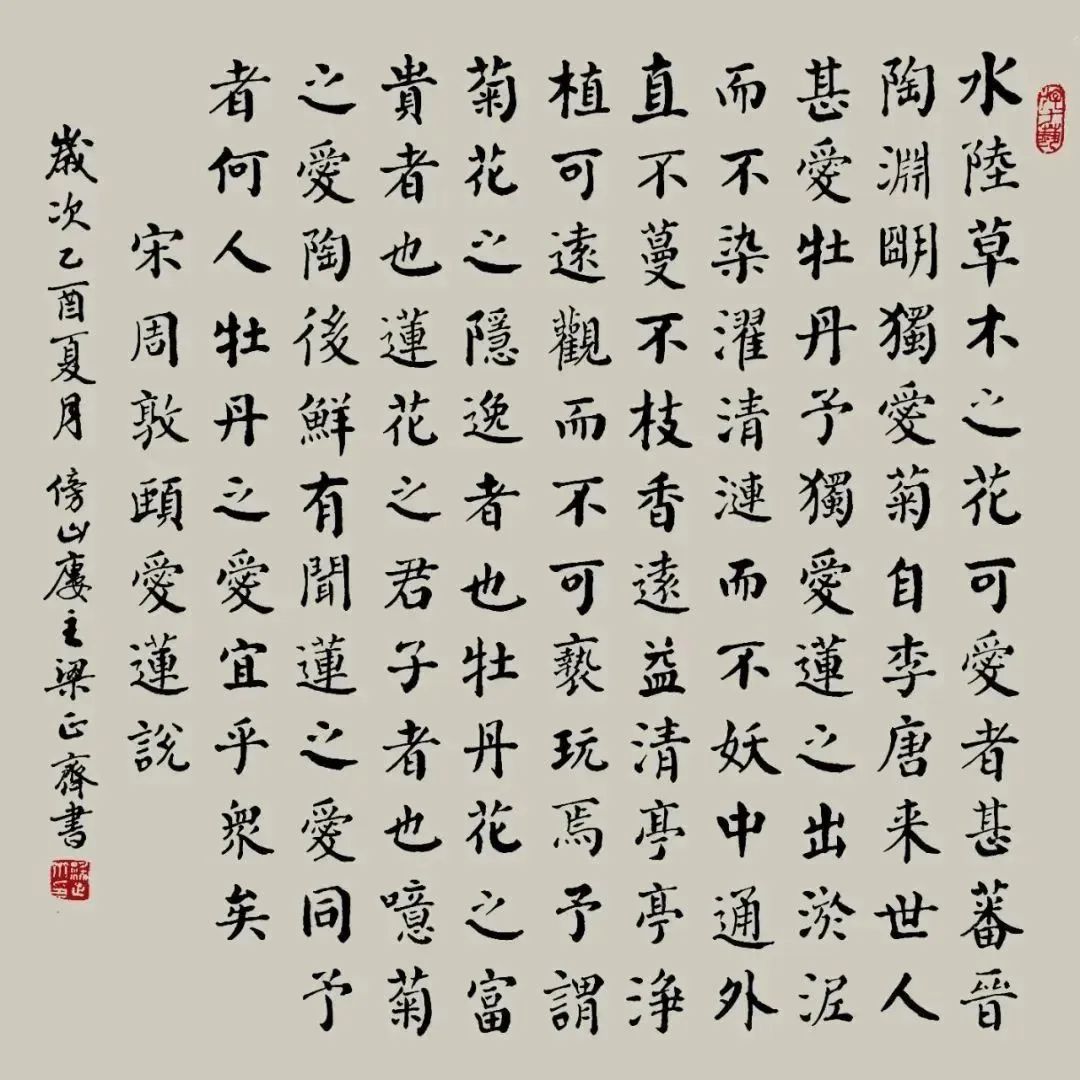 水陸草木之花可愛者甚蕃晉
陶淵明獨愛菊自李唐来世人
甚愛牡丹予獨愛蓮之出淤泥
而不染濯清漣而不妖中通外
直不蔓不枝香遠益清亭亭淨
植可遠觀而不可褻玩焉予謂
菊花之隱逸者也牡丹花之富
貴者也蓮花之君子者也噫菊
之愛陶後鮮有聞蓮之愛同予
者何人牡丹之愛宜乎衆矣
宋周敦頤愛蓮說
歲次乙酉夏月傍山廔主梁正齊書